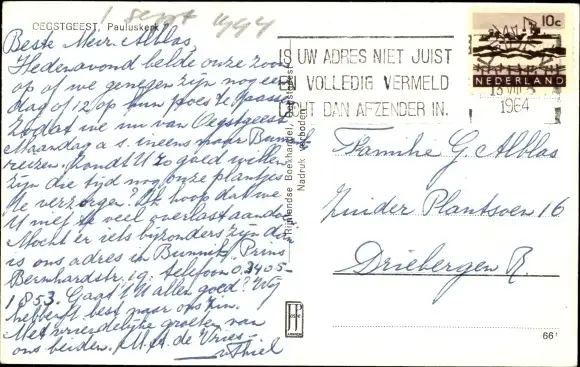 1 sept 1994
OEGSTGEEST, Pauluskerk
Beste Mevr. Alblas,
Hedenavond belde onze zoon
op of we genegen zijn nog een
dag of 12 op hun poes te passen
zodat we nu van Oegstgeest
Maandag a.s. ineens naar Bunnik
reizen. Zoudt U zo goed willen
zijn die tijd nog onze plantjes
te verzorgen? Ik hoop dat we
U niet te veel overlast aandoen
Mocht er iets bijzonders zijn dan
is ons adres in Bunnik, Prins
Bernhardstr. 19. telefoon 03405-
1853. Gaat 't U allen goed? Wij
hebben 't best naar ons zin.
Met vriendelijke groeten van
ons beiden. M. A. de Vries-
v. Thiel
Rijnlandse Boekhandel, Oegstgeest
Nadruk verboden
IS UW ADRES NIET JUIST
EN VOLLEDIG VERMELD
DAN AFZENDER IN.
10c
NEDERLAND
1964
Familie G. Alblas
Zuider Plantsoen 16
Driebergen R.
66